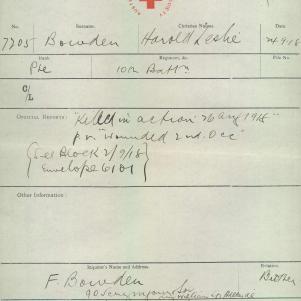 No. Surname. Christian Names. Date.
7705 Bowden Harold Leslie 24.9.18
Rank Regiment, &c. File No.
Pte 10th Battn
C/
L
OFFICIAL REPORTS: "Killed in action 26 Aug 1918"
p.r. "Wounded 2nd. Occ"
(See Block 2/9/18)
Envelope 6101
Other Information:
Inquirer's Name and Address. Relation.
F. Bowden Brother